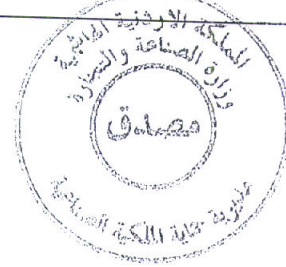 المملكة الاردنية الهاشمية
وزارة الصناعة والتجارة
مصدق
مديرية حماية الملكية الصناعية